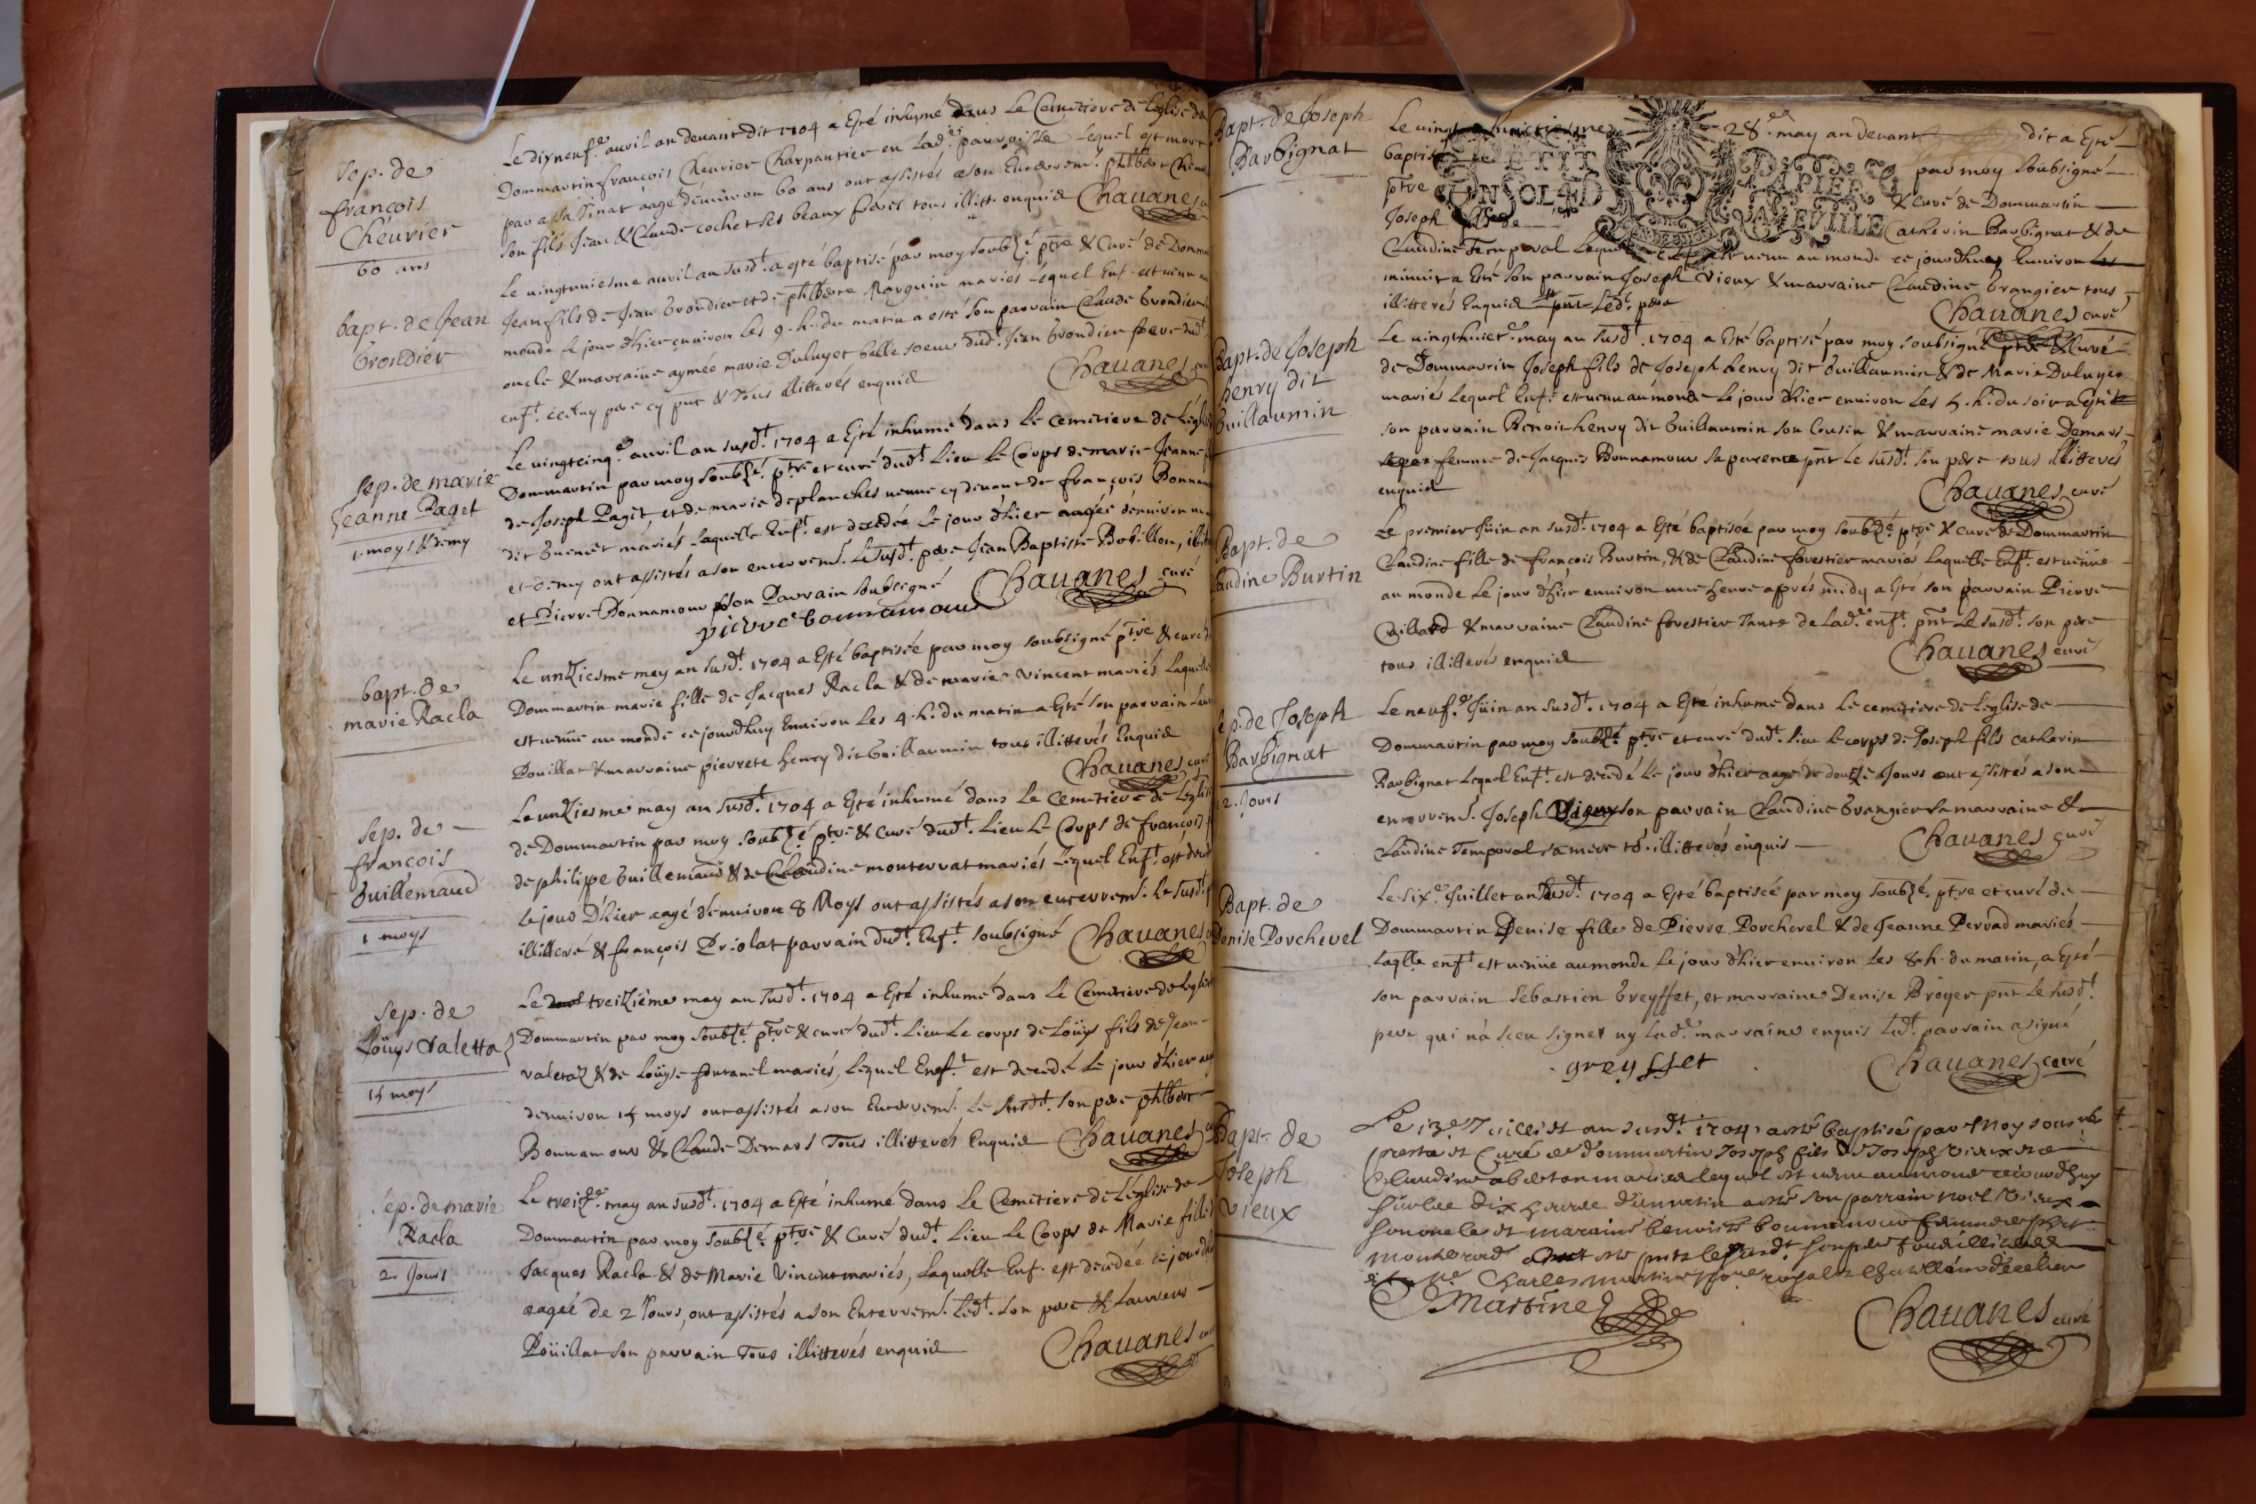 Sep. de
françois
Cheurier
60 ans
Le dixneuf.e auril an deuant dit 1704 a Esté inhumé dans Le Cemetiere de L'eglise de
Dommartin françois Cheurier Charpantier en Lad.e parroisse Lequel est mort
par assassinat aagé d'enuiron 60 ans ont assistés a son Enterrem.t philbert Cheu
son fils Jean & Claude cochet ses beaux freres tous illitt. enquid Chauanes
bapt. de Jean
Grondier
Le uingtuniesme auril an susd.t a esté baptisé par moy soubs.é ptre & Curé de Domm
Jean fils de Jean Grondier et de philberte Marguin mariés Lequel Enf. est uenu au
monde Le jour d'hier enuiron Les 9. h. du matin a esté son parrain Claude Grondier
oncle & marraine aymée marie Duluyet belle soeur dud.t Jean Grondier pere dud.t
enf.t iceluy pere cy pnt & Tous illitterés enquid Chauanes
Sep. de marie
Jeanne Paget
1. moys & demy
Le uingtcinq.e auril an susd.t 1704 a Esté inhumé dans Le cemetiere de L'eglise
Dommartin par moy soubs.é ptre et curé dud.t Lieu Le Corps de marie Jeanne
de Joseph Pagêt et de marie deplanches ueuue cy deuant de françois Bonnam
dit Guenêt mariés Laquelle Enf.t est decedée Le jour d'hier aagée d'enuiron un
et demy ont assistés a son enterrem.t Le susd.t pere Jean Baptiste Bobillon, illit
et Pierre Bonnamour son Parrain soubsigné Chauanes curé
pierre bonnamour
bapt. de
marie Racla
Le unziesme may an susd.t 1704 a Esté baptisée par moy soubsigné ptre & curé d
Dommartin marie fille de Jacques Racla & de marie Vincent mariés Laquelle
est uenüe au monde ce jourdhuy Enuiron Les 4. h. du matin a Esté son parrain Laur
Pouillat & marraine pierrete henry dit Guillaumin tous illitterés Enquid
Chauanes curé
Sep. de
françois
Guillemaud
1 moys
Le unziesme may an susd.t 1704 a Esté inhumé dans Le Cemetiere de L'eglise
de Dommartin par moy soubs.é ptre & Curé dud.t Lieu Le Corps de françois f
de philipe Guillemaud & de Claudine monterrat mariés Lequel Enf.t est dece
Le jour D'hier aagé d'enuiron 8 Moys ont assistés a son enterrem.t Le susd.t p
illitteré & françois Priolat parrain dud.t Enf.t soubsigné Chauanes
Sep. de
Loüys Valettaz
15 moys
Le treiziéme may an susd.t 1704 a Esté inhumé dans Le Cemetiere de L'eglise
Dommartin par moy soubs.é ptre & curé dud.t Lieu Le corps de Loüys fils de Jean
valetaz & de Loüyse fontanel mariés, Lequel Enf.t est decedé Le jour d'hier aag
d'enuiron 15 moys ont assistés a son Enterrem.t Le susd.t son pere philbert
Bonnamour & Claude Demars Tous illitterés Enquid Chauanes
Sép. de marie
Racla
2. Jours
Le treiz.e may an susd.t 1704 a Esté inhumé dans Le Cemetiere de L'église de
Dommartin par moy soubs.é ptre & Curé dud.t Lieu Le Corps de Marie fille
Jacques Racla & de Marie Vincent mariés, Laquelle Enf. est decedée ce jourd'h
aagée de 2 Jours, ont assistés a son Enterrem.t Led.t son pere & Laurens
Poüillat son parrain Tous illitterés enquid Chauanes
Bapt. de Joseph
Barbignat
Le vingt 28.e may an deuant dit a Esté
baptisé par moy soubsigné
ptre & curé de Dommartin
PETIT PAPIER
UN SOL 4D
VACEVILLE
Joseph fils de Catherin Barbignat & de
Claudine Temporal Lequel est uenu au monde ce jourdhuy Enuiron
minuit a Esté son parrain Joseph Vieux & marraine Claudine Grangier tous
illitterés Enquid pnt Led.t pere
Chauanes curé
Bapt. de Joseph
henry dit
Guillaumin
Le uingthuict.e may an susd.t 1704 a Esté baptisé par moy soubsigné ptre & Curé
de Dommartin Joseph fils de Joseph henry dit Guillaumin & de Marie Duluyer
mariés Lequel Enf.t est uenu au monde Le jour d'hier enuiron Les 5. h. du soir a Esté
son parrain Benoit henry dit Guillaumin son Cousin & marraine marie Demars
femme de Jacques Bonnamour sa parente pnt Le susd.t son pere tous illitterés
enquid Chauanes curé
Bapt. de
Claudine Burtin
Le premier Jüin an susd.t 1704 a Esté baptisée par moy soubs.é ptre & curé de Dommartin
Claudine fille de françois Burtin, & de Claudine forestier mariés Laquelle Enf.t est uenüe
au monde Le jour d'hier enuiron une heure aprés midy a Esté son parrain Pierre
Caillard & marraine Claudine forestier Tante de Lad.e enf.t pnt Le susd.t son pere
tous illitterés enquid Chauanes curé
Sep. de Joseph
Barbignat
12. Jours
Le neuf.e Jüin an susd.t 1704 a Esté inhumé dans Le cemetiere de L'eglise de
Dommartin par moy soubs.é ptre et curé dud.t Lieu Le corps de Joseph fils Catherin
Barbignat Lequel Enf.t est decedé Le jour d'hier aagé de douze Jours ont assistés a son
enterrem.t Joseph Vieux son parrain Claudine Grangier sa marraine &
Claudine Temporal sa mere td. illitterés enquis Chauanes curé
Bapt. de
Denise Porcherel
Le six.e Juillet an susd.t 1704 a Esté baptisée par moy soubs.é ptre et curé de
Dommartin Denise fille de Pierre Porcherel & de Jeanne Perrad mariés
Laqlle enf.t est uenüe au monde Le jour d'hier enuiron Les 8. h. du matin, a Esté
son parrain Sebastien Greyffet, et marraine Denise Broyer pnt Le susd.t
pere qui n'a sceu signer ny Lad.e marraine enquis Led.t parrain a signé
greyffet Chauanes curé
Bapt. de
Joseph
Vieux
Le 13.e Juillet an susd.t 1704 a esté baptisé par Moy sous
prestre et Curé de dommartin Joseph fils de Joseph vieux et de
Claudine abeston mariés lequel est uenu au monde ce jourdhuy
sur les dix heures du matin a esté son parrain noel Vieux
et maraine benoiste bonnamour femme de
Charles martine royal et Chastellain d
Martine Chauanes curé